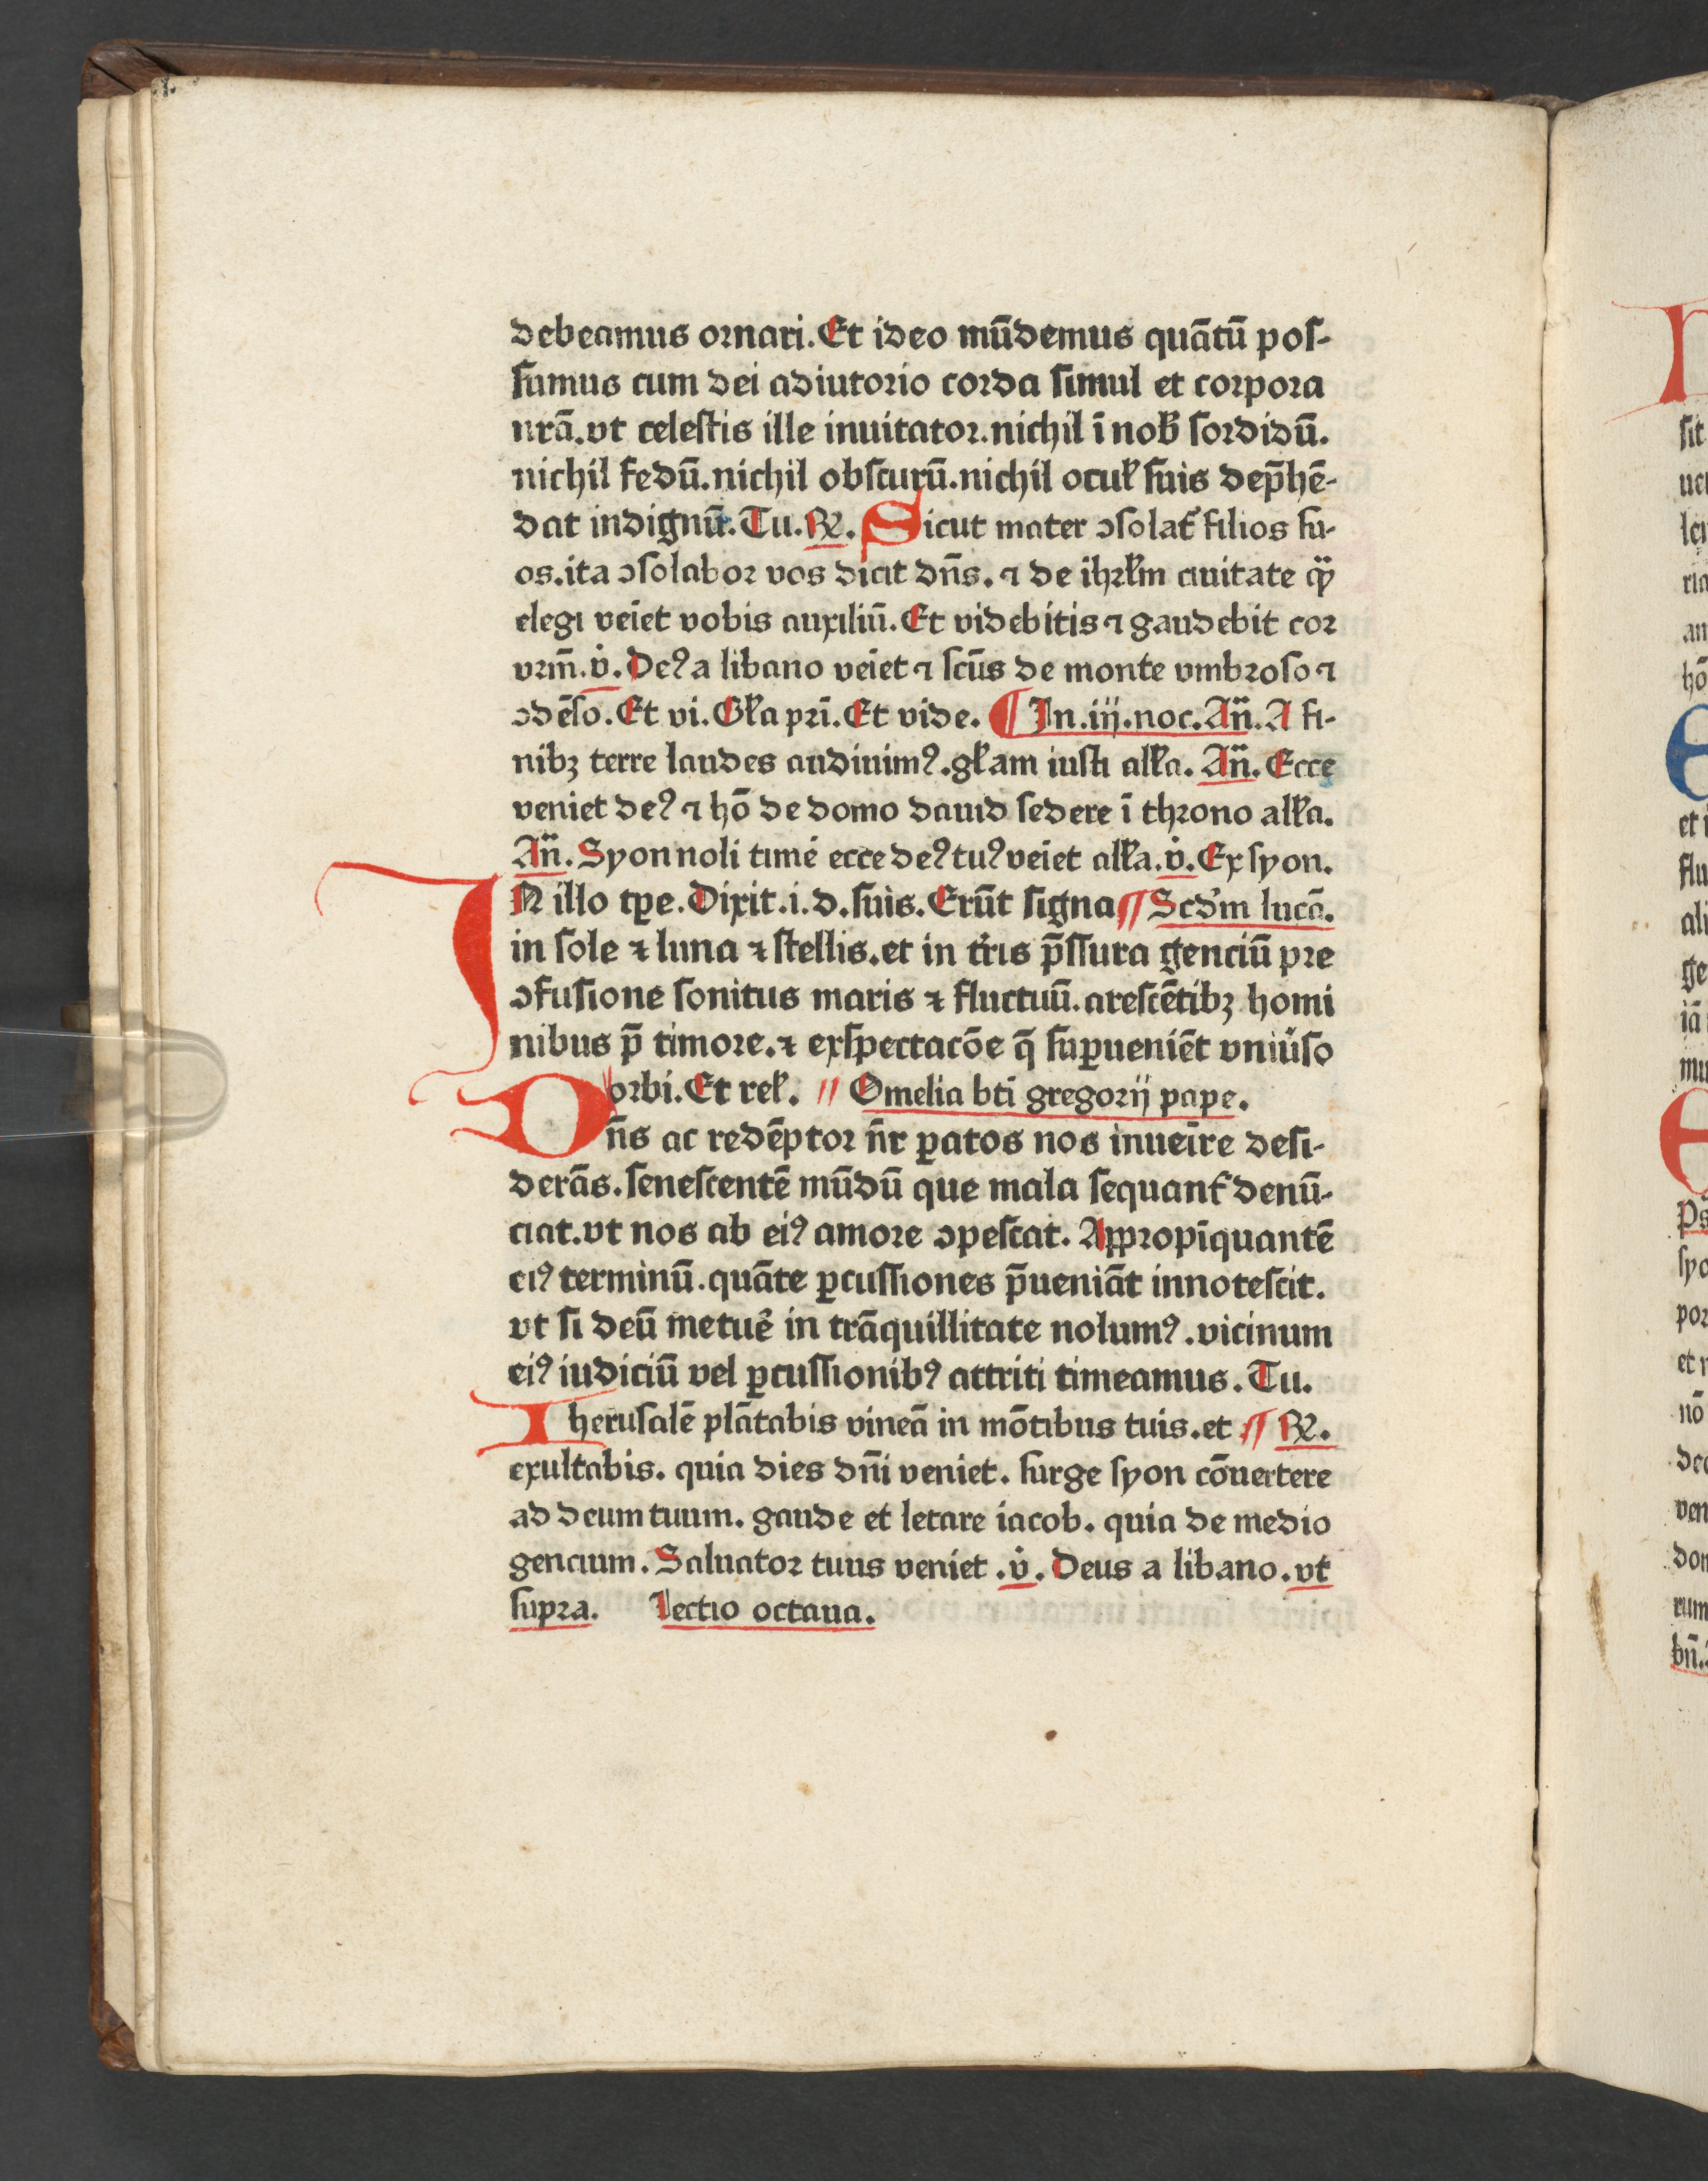 debeamus ornari. Et ideo mūdemus quātū pos-
sumus cum dei adiutorio corda simul et corpora
nrā. vt celestis ille inuitator. nichil ī nob̄ sordidū.
nichil fedū. nichil obscurū. nichil ocul̄ suis dep̄hē-
dat indignū. Tu. ℟. Sicut mater ↄsolat᷑ filios su-
os. ita ↄsolabor vos dicit dn̄s. ⁊ de ihrl̄m ciuitate qͣ̄
elegi veīet vobis auxiliū. Et videbitis ⁊ gaudebit cor
vrm̄. v̇. Deꝰ a libano veīet ⁊ scūs de monte vmbroso ⁊
ↄdēso. Et vi. Gl̄a prī. Et vide. ¶ In. iij. noc. An̄. A fi-
nibꝫ terre laudes audiuimꝰ. gl̄am iusti all̄a. An̄. Ecce
veniet deꝰ ⁊ hō de domo dauid sedere ī throno all̄a.
An̄. Syon noli time᷑ ecce deꝰ tuꝰ veīet all̄a. v̇. Ex syon.
IN illo tꝑe. Dixit. i. d. suis. Erūt signa ¶ Scd̄m lucā.
in sole ⁊ luna ⁊ stellis. et in tr̄is p̄ssura genciū pre
ↄfusione sonitus maris ⁊ fluctuū. arescētibꝫ homi
nibus p̄ timore. ⁊ exspectacōe q̄ suꝑueniēt vniu᷑so
orbi. Et rel̄. // Omelia btī gregorij pape.
Dn̄s ac redēptor n̄r ꝑatos nos inueīre desi-
derās. senescentē mūdū que mala sequant᷑ denū-
ciat. vt nos ab eiꝰ amore ↄpescat. Appropīquantē
eiꝰ terminū. quāte ꝑcussiones p̄ueniāt innotescit.
vt si deū metue᷑ in trāquillitate nolumꝰ. vicinum
eiꝰ iudiciū vel ꝑcussionibꝰ attriti timeamus. Tu.
Iherusalē plātabis vineā in mōtibus tuis. et ¶ ℟.
exultabis. quia dies dn̄i veniet. surge syon cōuertere
ad deum tuum. gaude et letare iacob. quia de medio
gencium. Saluator tuus veniet. v̇. Deus a libano. vt
supra. Lectio octaua.